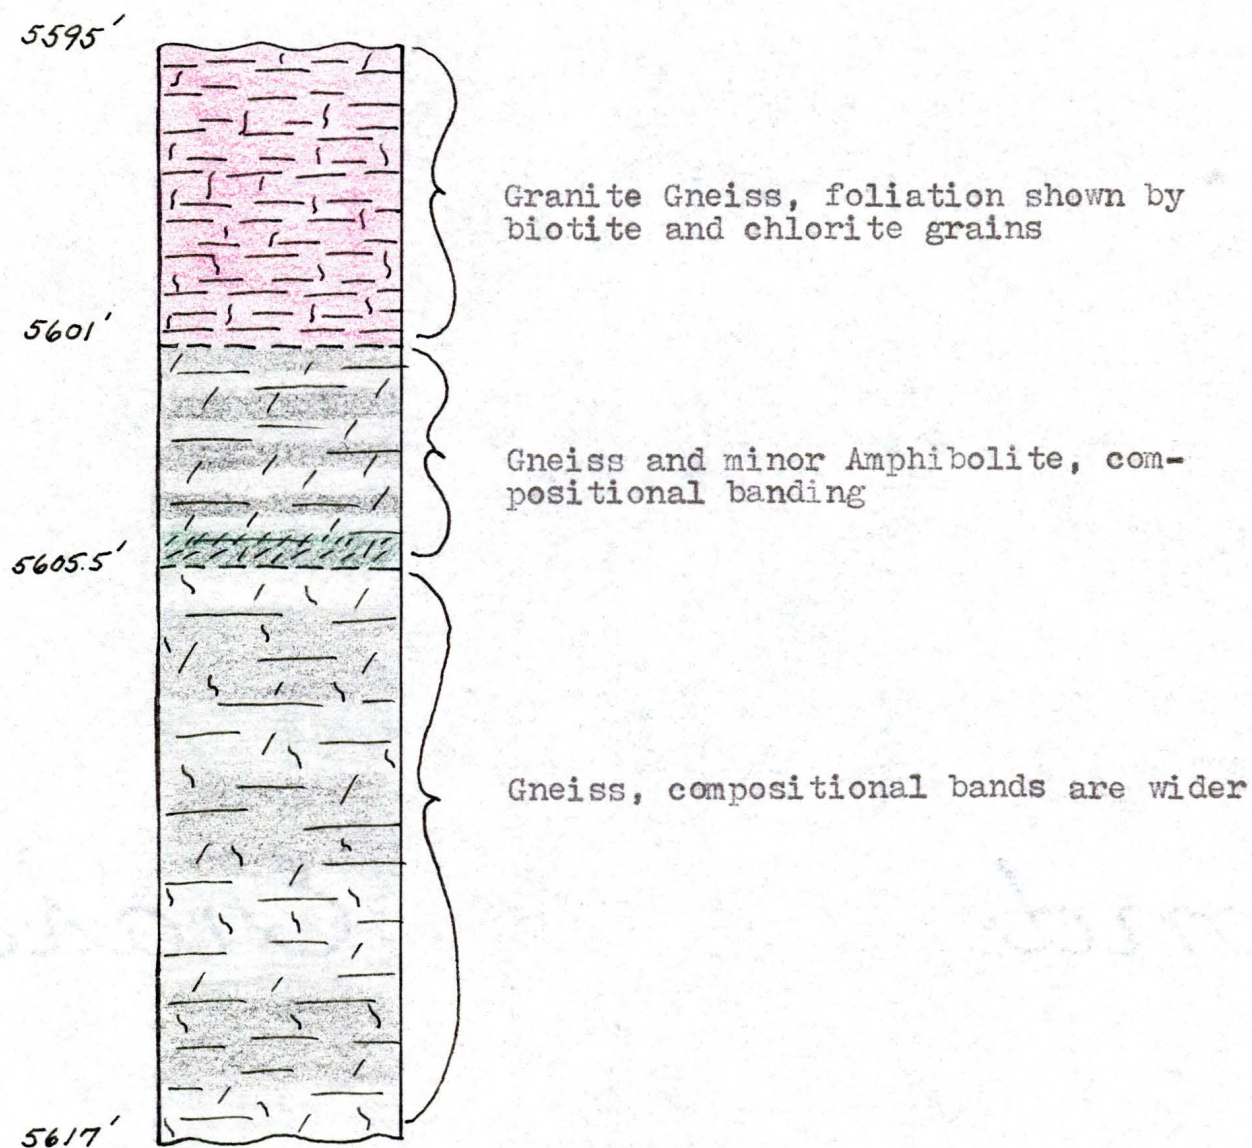 5595'
Granite Gneiss, foliation shown by
biotite and chlorite grains
5601'
Gneiss and minor Amphibolite, com-
positional banding
5605.5'
Gneiss, compositional bands are wider
5617'